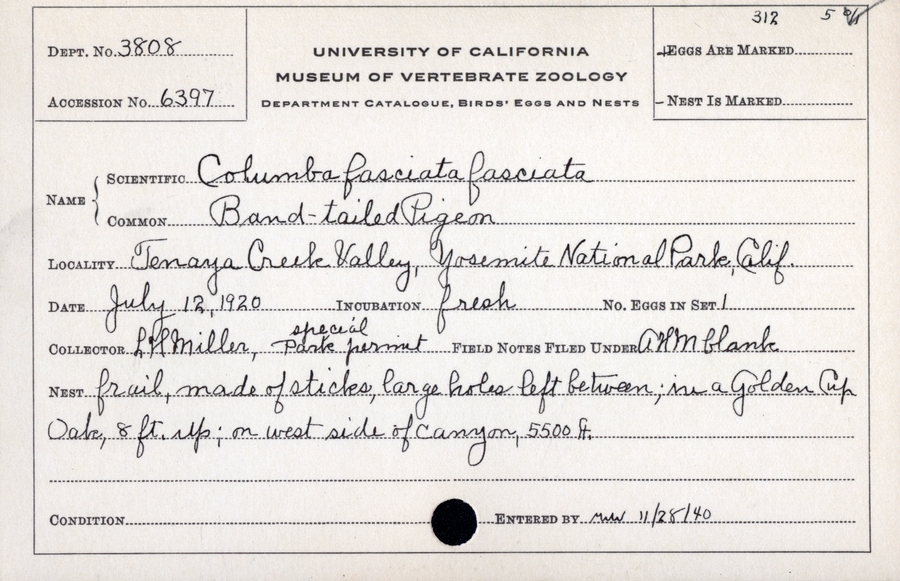 312 5
DEPT. No. 3808
UNIVERSITY OF CALIFORNIA
MUSEUM OF VERTEBRATE ZOOLOGY
DEPARTMENT CATALOGUE, BIRDS' EGGS AND NESTS
EGGS ARE MARKED
ACCESSION No. 6397
NEST IS MARKED
NAME
SCIENTIFIC Columba fasciata fasciata
COMMON Band-tailed Pigeon
LOCALITY Tenaya Creek Valley, Yosemite National Park, Calif.
DATE July 12, 1920 INCUBATION fresh No. EGGS IN SET 1
special
COLLECTOR L H Miller, Park permit FIELD NOTES FILED UNDER AHM blank
NEST frail, made of sticks, large holes left between; in a Golden Cup
Oak, 8 ft. up; on west side of canyon, 5500 ft.
CONDITION ENTERED BY 11/28/40